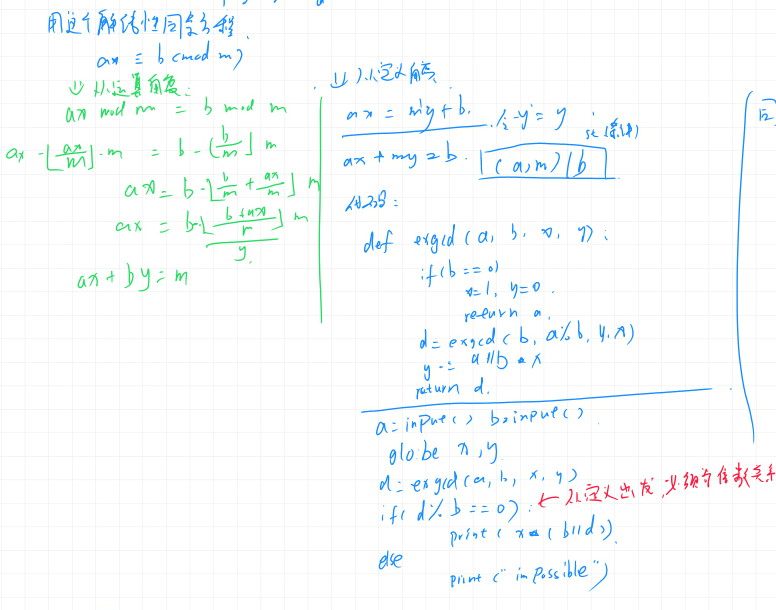 用这个解线性同余方程
ax ≡ b (mod m)
(1) 从运算角度:
ax mod m = b mod m
ax - ⌊ax/m⌋·m = b - ⌊b/m⌋ m
ax = b - ⌊b/m + ax/m⌋ m
ax = b - ⌊(b+ax)/m⌋ m
y
ax + by = m
(1) 从定义角度
ax = my' + b. 令 -y' = y
ax + my = b. (a, m) | b
代码:
def exgcd (a, b, x, y):
if (b == 0)
x=1, y=0.
return a.
d = exgcd (b, a%b, y, x)
y -= a//b * x
return d.
a=input() b=input()
globe x, y
d = exgcd (a, b, x, y)
if( d % b == 0): ← 从定义出发,必须为倍数关系
print ( x * (b//d))
else
print ("impossible")